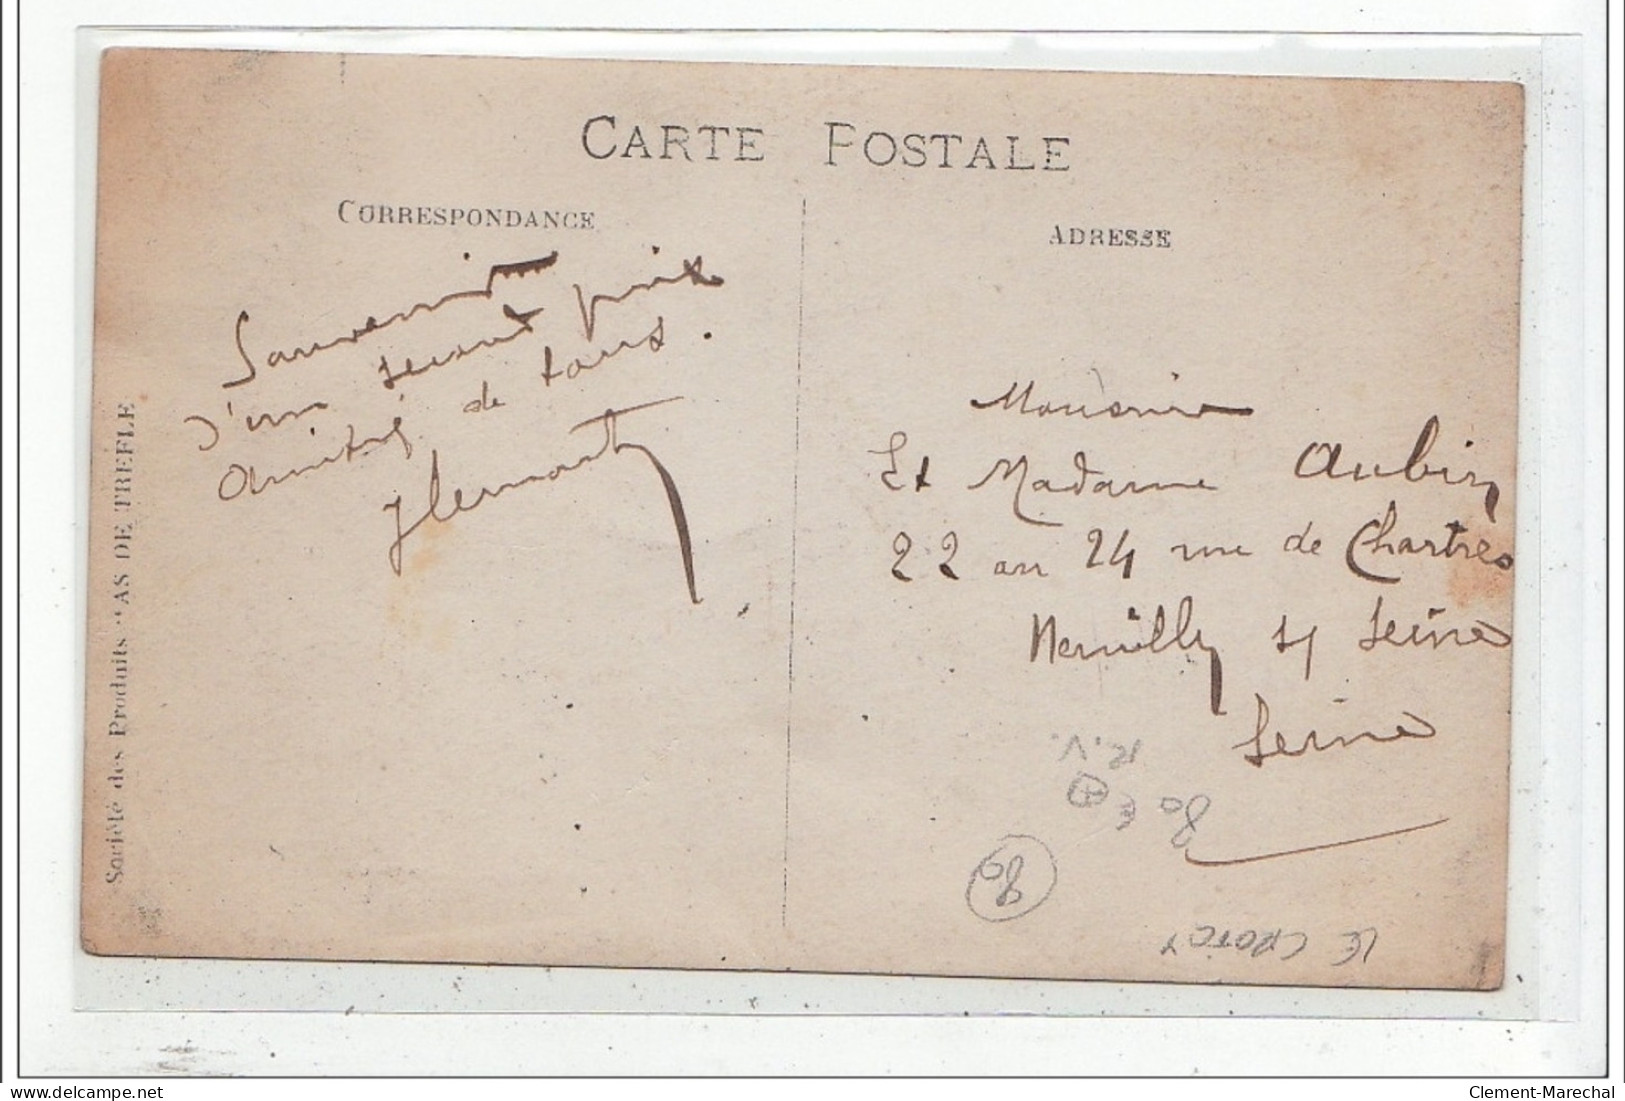 CARTE POSTALE
CORRESPONDANCE
ADRESSE
Souvenir
d'un second prix
Amitiés de tous.
Monsieur
Et Madame Aubin
22 ou 24 rue de Chartres
Neuilly s/ Seine
Seine
R.V.
80 €
80
LE CROTOY
Société des Produits "AS DE TREFLE
delcampe.net
Clement-Marechal